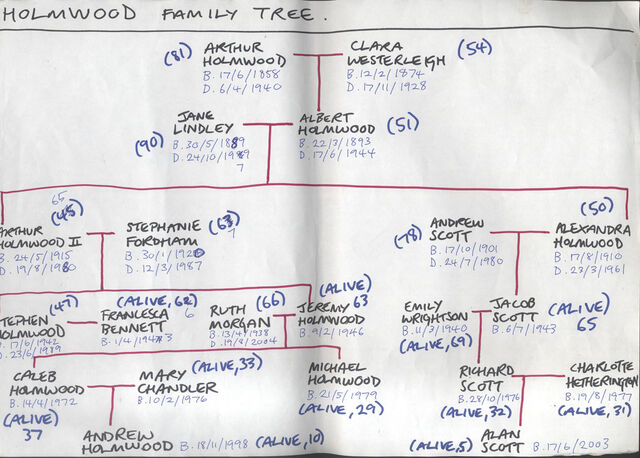 HOLMWOOD FAMILY TREE.
(81) ARTHUR HOLMWOOD
B. 17/6/1858
D. 6/4/1940
CLARA WESTERLEIGH (54)
B. 12/2/1874
D. 17/11/1928
JANE LINDLEY
(90) B. 30/5/1889
D. 24/10/19 9
7
ALBERT HOLMWOOD (51)
B. 22/3/1893
D. 17/6/1944
65
(45)
ARTHUR HOLMWOOD II
B. 24/5/1915
D. 19/8/1980
STEPHANIE FORDHAM (63)
7
B. 30/1/1920
D. 12/3/1987
ANDREW SCOTT
(78) B. 17/10/1901
D. 24/7/1980
(50)
ALEXANDRA HOLMWOOD
B. 17/8/1910
D. 23/3/1961
(47)
STEPHEN HOLMWOOD
B. 17/6/1942
D. 23/6/1989
(ALIVE, 62)
6
FRANCESCA BENNETT
B. 1/4/194 3
RUTH MORGAN (66)
B. 13/4/1938
D. 19/8/2004
(ALIVE)
63
JEREMY HOLMWOOD
B. 9/2/1946
EMILY WRIGHTSON
B. 11/3/1940
(ALIVE, 69)
JACOB SCOTT (ALIVE)
65
B. 6/7/1943
CALEB HOLMWOOD
B. 14/4/1972
(ALIVE)
37
(ALIVE, 33)
MARY CHANDLER
B. 10/2/1976
MICHAEL HOLMWOOD
B. 21/5/1979
(ALIVE, 29)
RICHARD SCOTT
B. 28/10/1976
(ALIVE, 32)
CHARLOTTE HETHERINGTON
B. 19/8/1977
(ALIVE, 31)
ANDREW HOLMWOOD B. 18/11/1998 (ALIVE, 10)
(ALIVE, 5) ALAN SCOTT B. 17/6/2003